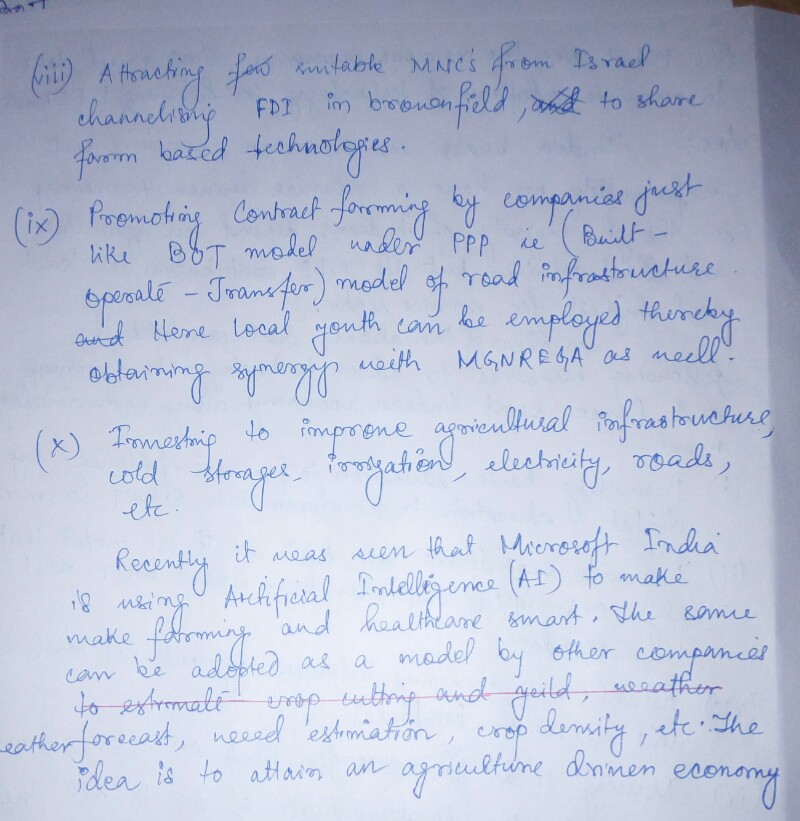 (viii) Attracting few suitable MNC's from Israel
channelising FDI in brownfield, and to share
farm based technologies.
(ix) Promoting Contract farming by companies just
like BOT model under PPP ie (Built -
Operate - Transfer) model of road infrastructure.
and Here local youth can be employed thereby
obtaining synergy with MGNREGA as well.
(x) Investing to improve agricultural infrastructure,
cold storages, irrigation, electricity, roads,
etc.
Recently it was seen that Microsoft India
is using Artificial Intelligence (AI) to make
make farming and healthcare smart. The same
can be adopted as a model by other companies
to estimate crop cutting and yeild, weather
eather forecast, weed estimation, crop density, etc. The
idea is to attain an agriculture driven economy